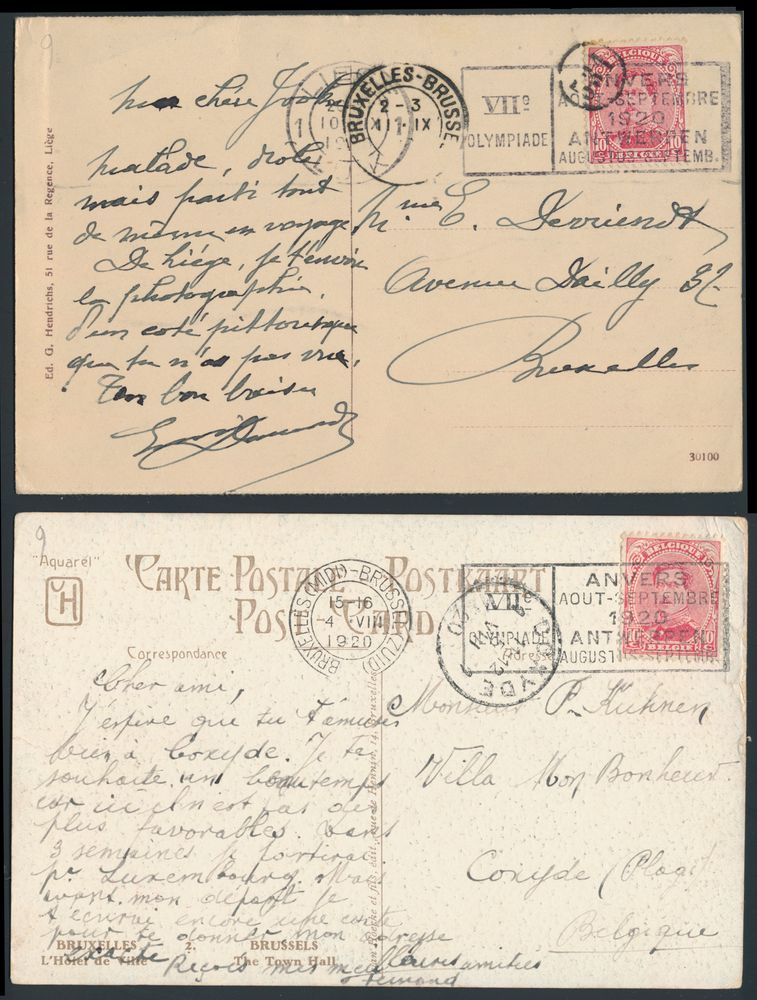 9
Ed. G. Hendrichs, 51 rue de la Regence, Liège
BRUXELLES-BRUSSEL
2-3
1 IX
VIIe
OLYMPIADE
ANVERS
AOUT-SEPTEMBRE
1920
ANTWERPEN
AUGUSTUS-SEPTEMB.
BELGIQUE
chère
malade,
mais parti tout
de même en voyage
De Liége, je t'envoie
la photographie,
d'un coté pittoresque
que tu n'as pas vue,
Ton bon baiser
Mme E. Devriendt
Avenue Dailly 32
Bruxelles
30100
9
"Aquarel"
H
CARTE POSTALE POSTKAART
POST CARD
BRUXELLES (MIDI)-BRUSSEL (ZUID)
15-16
4 VIII
1920
VIIe
OLYMPIADE
ANVERS
AOUT-SEPTEMBRE
1920
ANTWERPEN
AUGUSTUS-SEPTEMB.
BELGIQUE
Correspondance
Adresse
Cher ami,
J'espère que tu t'amuses
bien à Coxyde. Je te
souhaite un beau temps
car ici il n'en est pas des
plus favorables. Dans
3 semaines je partirai
pr Luxembourg. Mais
avant mon départ je
t'écrirai encore une carte
pour te donner mon adresse
exacte
Reçois mes meilleures amitiés
Monsieur P. Kuhnen
Villa Mon Bonheur.
Coxyde (Plage)
Belgique
BRUXELLES 2. BRUSSELS
L'Hôtel de Ville The Town Hall